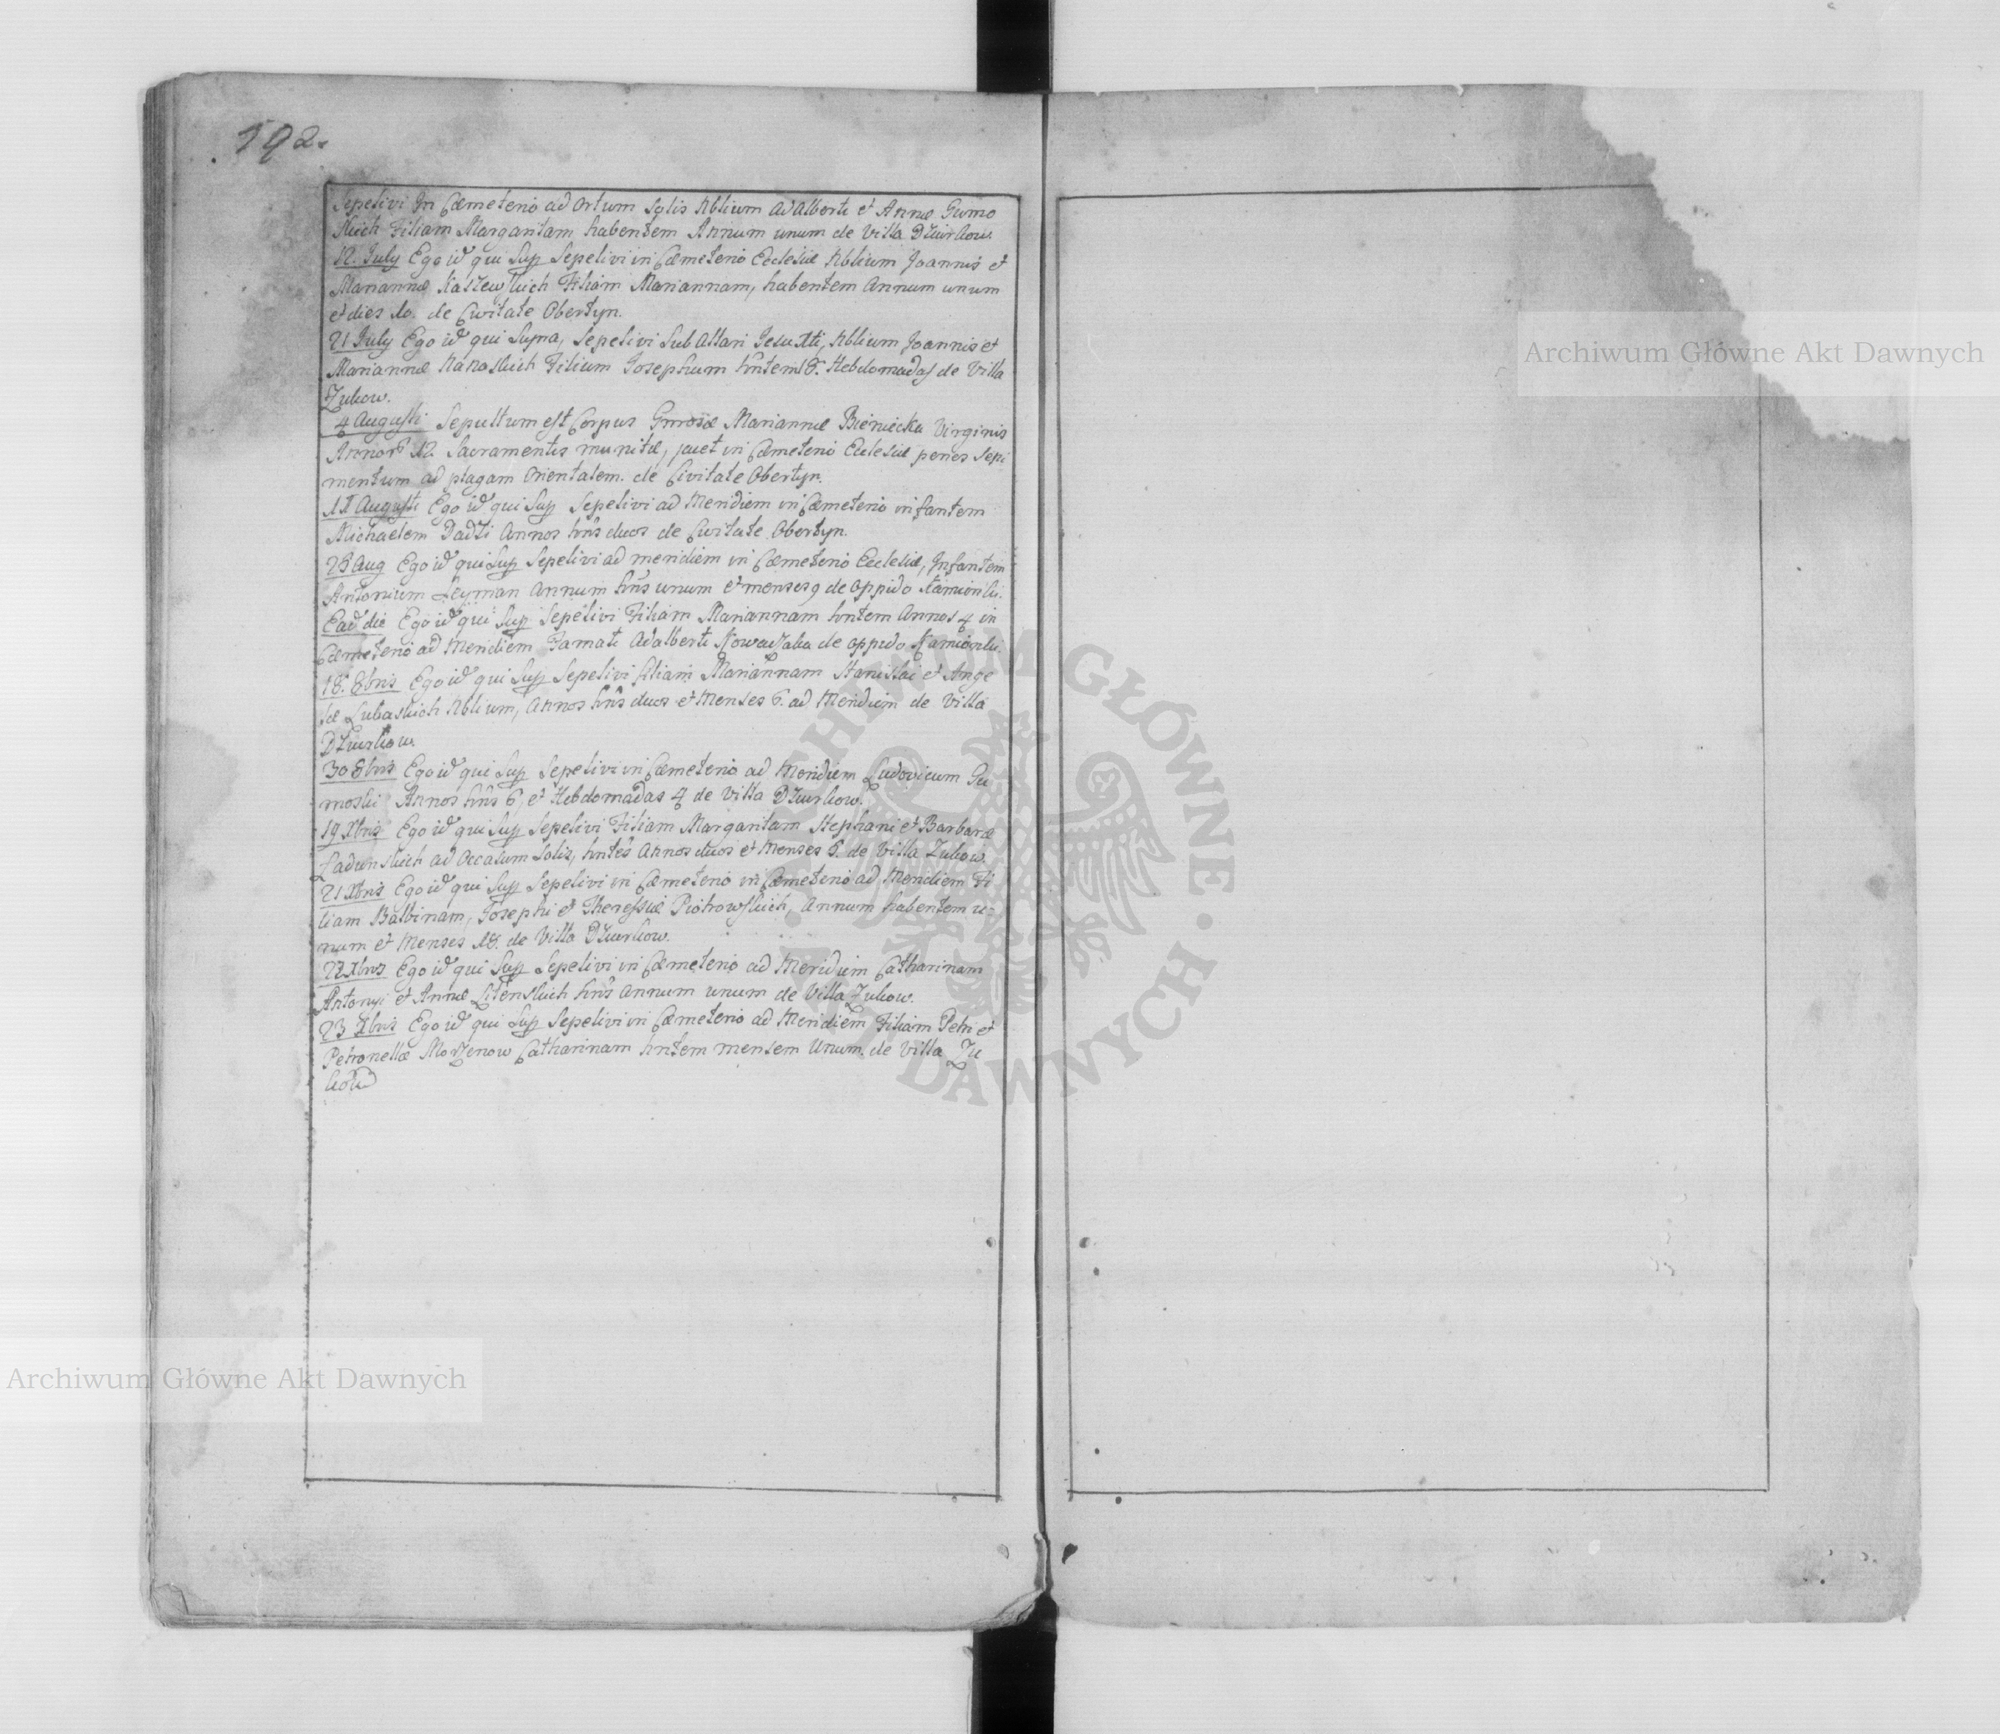 192.
Sepelivi In Cœmeterio ad Ortum Solis Nblium Adalberti et Annæ Gumo
skich Filiam Margaritam habentem Annum unum de Villa Dzurkow
12. July Ego id qui Sup Sepelivi in Cœmeterio Ecclesiæ Nblium Joannis et
Mariannæ Kaszewskich Filiam Mariannam, habentem Annum unum
et dies 10. de Civitate Obertyn.
21 July Ego id qui Supra, Sepelivi Sub Altari Jesu Xti, Nblium Joannis et
Mariannæ Filium Josephum hntem 6. Hebdomadas de Villa
Zukow.
4 Augusti Sepultum est Corpus Gnrosæ Mariannæ Bieniecka Virginis
Annor 12. Sacramentis munitæ, jacet in Cœmeterio Ecclesiæ penes Sepi
mentum ad plagam Orientalem. de Civitate Obertyn.
11 Augusti Ego id qui Sup Sepelivi ad Meridiem in Cœmeterio infantem
Michaelem Dadzi Annos hns duos de Civitate Obertyn.
23 Aug Ego id qui Sup Sepelivi ad meridiem in Cœmeterio Ecclesiæ, Infantem
Antonium Leyman Annum hns unum et menses 9 de Oppido
Ead die Ego id qui Sup Sepelivi Filiam Mariannam hntem Annos 4 in
Cœmeterio ad Meridiem Famati Adalberti de oppido
18. 8bris Ego id qui Sup Sepelivi filiam Mariannam Stanislai et Ange
læ Lubaskich Nblium, Annos hns duos et Menses 6. ad Meridiem de Villa
Dzurkow.
30 8bris Ego id qui Sup Sepelivi in Cœmeterio ad Meridiem Ludovicum Gu
moski Annos hns 6, et Hebdomadas 4 de Villa Dzurkow.
19 Xbris Ego id qui Sup Sepelivi Filiam Margaritam Stephani et Barbaræ
Ladunskich ad Occasum Solis, hntes Annos duos et Menses 6. de Villa Zukow.
21 Xbris Ego id qui Sup Sepelivi in Cœmeterio in Cœmeterio ad Meridiem Fi
liam Balbinam, Josephi et Theressiæ Piotrowskich, Annum habentem u-
num et Menses 18. de Villa Dzurkow.
22 Xbris Ego id qui Sup Sepelivi in Cœmeterio ad Meridiem Catharinam
Antonyi et Annæ Litenskich hns Annum unum de Villa Zukow.
23 Xbris Ego id qui Sup Sepelivi in Cœmeterio ad Meridiem Filiam Petri et
Petronellæ Morzenow Catharinam hntem mensem Unum. de Villa Zu
kow
Archiwum Główne Akt Dawnych
Archiwum Główne Akt Dawnych
ARCHIWUM GŁÓWNE AKT DAWNYCH